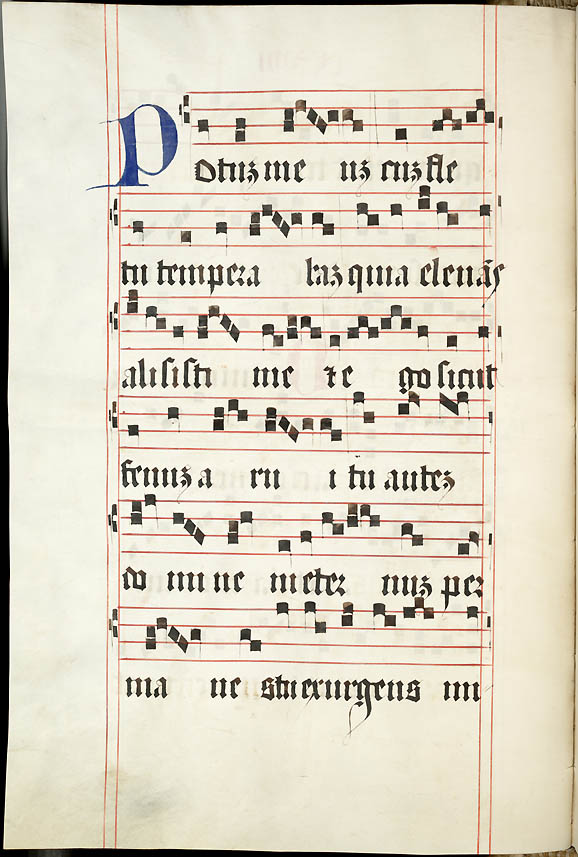 Potuz me uz cuz fle
tu tempera baz quia eleuās
alisisti me et e go sicut
fenuz a ru i tu autez
do mi ne in eter nuz per
ma ne s tu exurgens mi